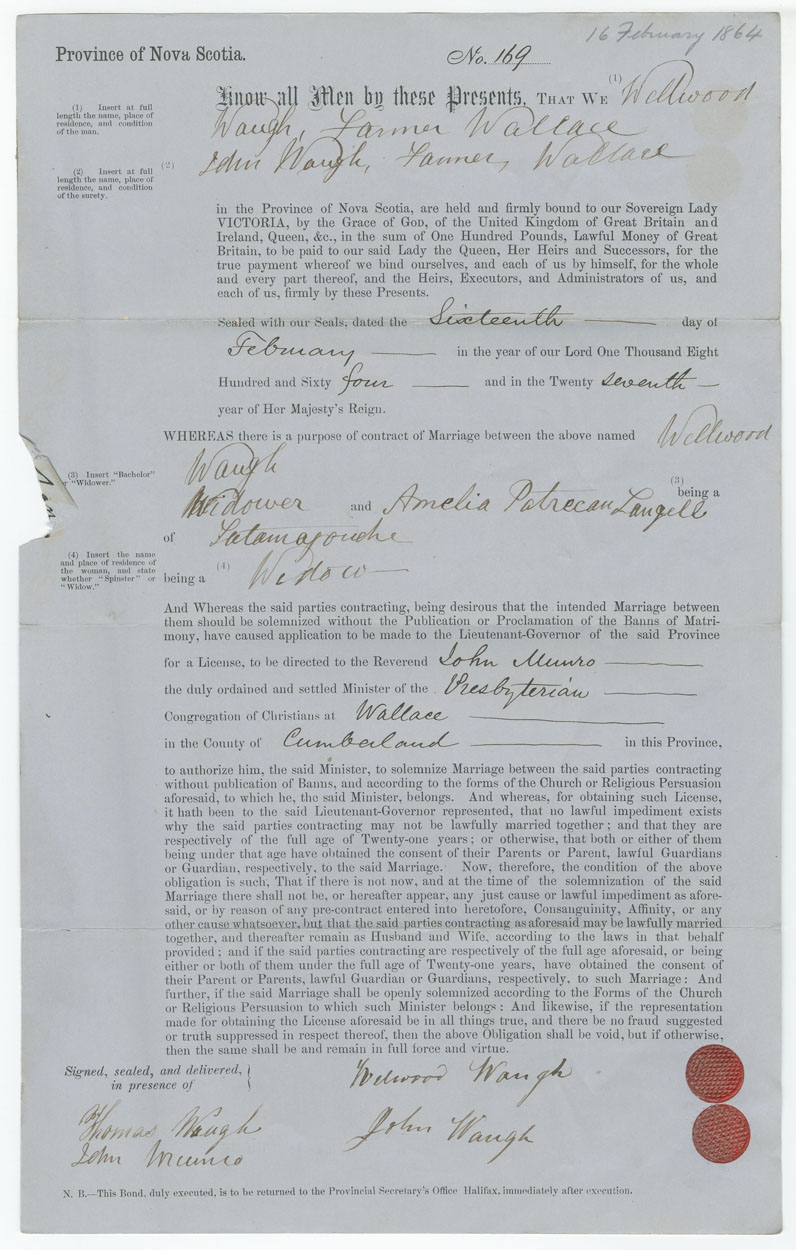 16 February 1864
Province of Nova Scotia.
No. 169
Know all Men by these Presents, THAT WE (1) Wellwood
Waugh, Farmer Wallace
(2) John Waugh, Farmer, Wallace
(1) Insert at full
length the name, place of
residence, and condition
of the man.
(2) Insert at full
length the name, place of
residence, and condition
of the surety.
in the Province of Nova Scotia, are held and firmly bound to our Sovereign Lady
VICTORIA, by the Grace of God, of the United Kingdom of Great Britain and
Ireland, Queen, &c., in the sum of One Hundred Pounds, Lawful Money of Great
Britain, to be paid to our said Lady the Queen, Her Heirs and Successors, for the
true payment whereof we bind ourselves, and each of us by himself, for the whole
and every part thereof, and the Heirs, Executors, and Administrators of us, and
each of us, firmly by these Presents.
Sealed with our Seals, dated the Sixteenth day of
February in the year of our Lord One Thousand Eight
Hundred and Sixty four and in the Twenty seventh
year of Her Majesty's Reign.
WHEREAS there is a purpose of contract of Marriage between the above named Wellwood
Waugh (3) being a
Widower and Amelia Patrecan Langell
of Tatamagouche
being a (4) Widow
(3) Insert "Bachelor"
"Widower."
(4) Insert the name
and place of residence of
the woman, and state
whether "Spinster" or
"Widow."
And Whereas the said parties contracting, being desirous that the intended Marriage between
them should be solemnized without the Publication or Proclamation of the Banns of Matri-
mony, have caused application to be made to the Lieutenant-Governor of the said Province
for a License, to be directed to the Reverend John Munro
the duly ordained and settled Minister of the Presbyterian
Congregation of Christians at Wallace
in the County of Cumberland in this Province,
to authorize him, the said Minister, to solemnize Marriage between the said parties contracting
without publication of Banns, and according to the forms of the Church or Religious Persuasion
aforesaid, to which he, the said Minister, belongs. And whereas, for obtaining such License,
it hath been to the said Lieutenant-Governor represented, that no lawful impediment exists
why the said parties contracting may not be lawfully married together; and that they are
respectively of the full age of Twenty-one years; or otherwise, that both or either of them
being under that age have obtained the consent of their Parents or Parent, lawful Guardians
or Guardian, respectively, to the said Marriage. Now, therefore, the condition of the above
obligation is such, That if there is not now, and at the time of the solemnization of the said
Marriage there shall not be, or hereafter appear, any just cause or lawful impediment as afore-
said, or by reason of any pre-contract entered into heretofore, Consanguinity, Affinity, or any
other cause whatsoever, but that the said parties contracting as aforesaid may be lawfully married
together, and thereafter remain as Husband and Wife, according to the laws in that behalf
provided; and if the said parties contracting are respectively of the full age aforesaid, or being
either or both of them under the full age of Twenty-one years, have obtained the consent of
their Parent or Parents, lawful Guardian or Guardians, respectively, to such Marriage: And
further, if the said Marriage shall be openly solemnized according to the Forms of the Church
or Religious Persuasion to which such Minister belongs: And likewise, if the representation
made for obtaining the License aforesaid be in all things true, and there be no fraud suggested
or truth suppressed in respect thereof, then the above Obligation shall be void, but if otherwise,
then the same shall be and remain in full force and virtue.
Signed, sealed, and delivered,
in presence of
Welwood Waugh
Thomas Waugh
John Waugh
John Munro
N. B.—This Bond, duly executed, is to be returned to the Provincial Secretary's Office Halifax, immediately after execution.